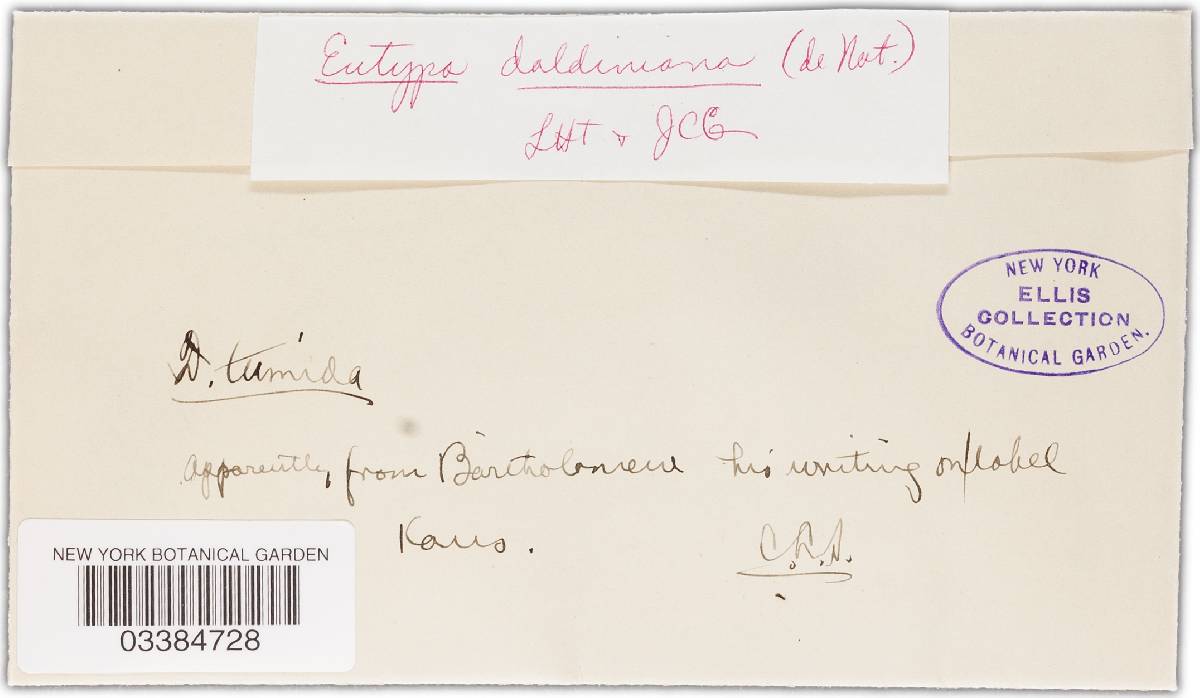 Eutypa daldiniana (de Not.)
LHT & JCG
NEW YORK
ELLIS
COLLECTION
BOTANICAL GARDEN.
D. tumida
apparently from Bartholomew his writing on label
Kans.
NEW YORK BOTANICAL GARDEN
03384728